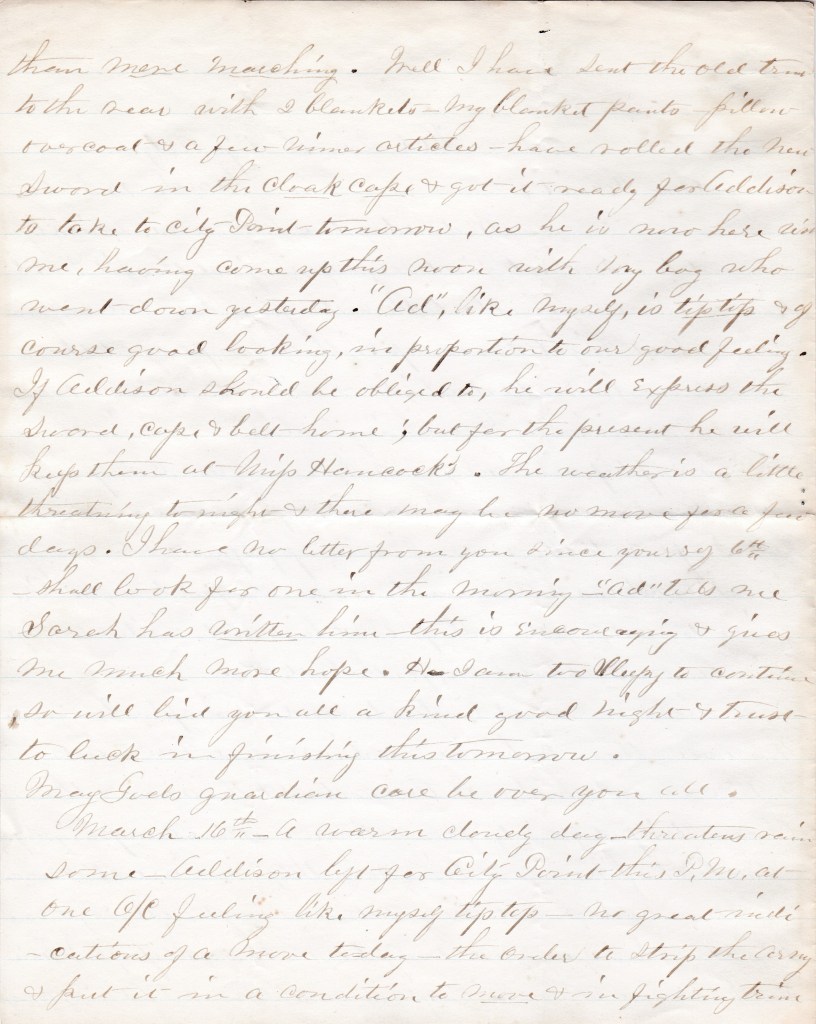 than mere marching. Well I have sent the old trun
to the rear with 2 blankets - my blanket pants - pillow
overcoat & a few minor articles - have rolled the new
sword in the cloak cape & got it ready for Addison
to take to City Point tomorrow, as he is now here with
me, having come up this noon with my bag who
went down yesterday. "Ad", like myself, is tiptip & of
course good looking, in proportion to our good feeling.
If Addison should be obliged to, he will Express the
sword, cape & belt home; but for the present he will
keep them at Miss Hancock's. The weather is a little
threatning tonight & there may be no move for a few
days. I have no letter from you since yours of 6th
- shall look for one in the morning - "Ad" tells me
Sarah has written him - this is Encouraging & gives
me much more hope. I am too sleepy to continue
, so will bid you all a kind good night & trust
to luck in finishing this tomorrow.
May Gods guardian care be over you all.
March 16th - A warm cloudy day - threatens rain
some - Addison left for City Point this P.M. at
one O/C feeling like myself tiptop - no great indi
-cations of a move today - the order to strip the army
& put it in a condition to move & in fighting trim